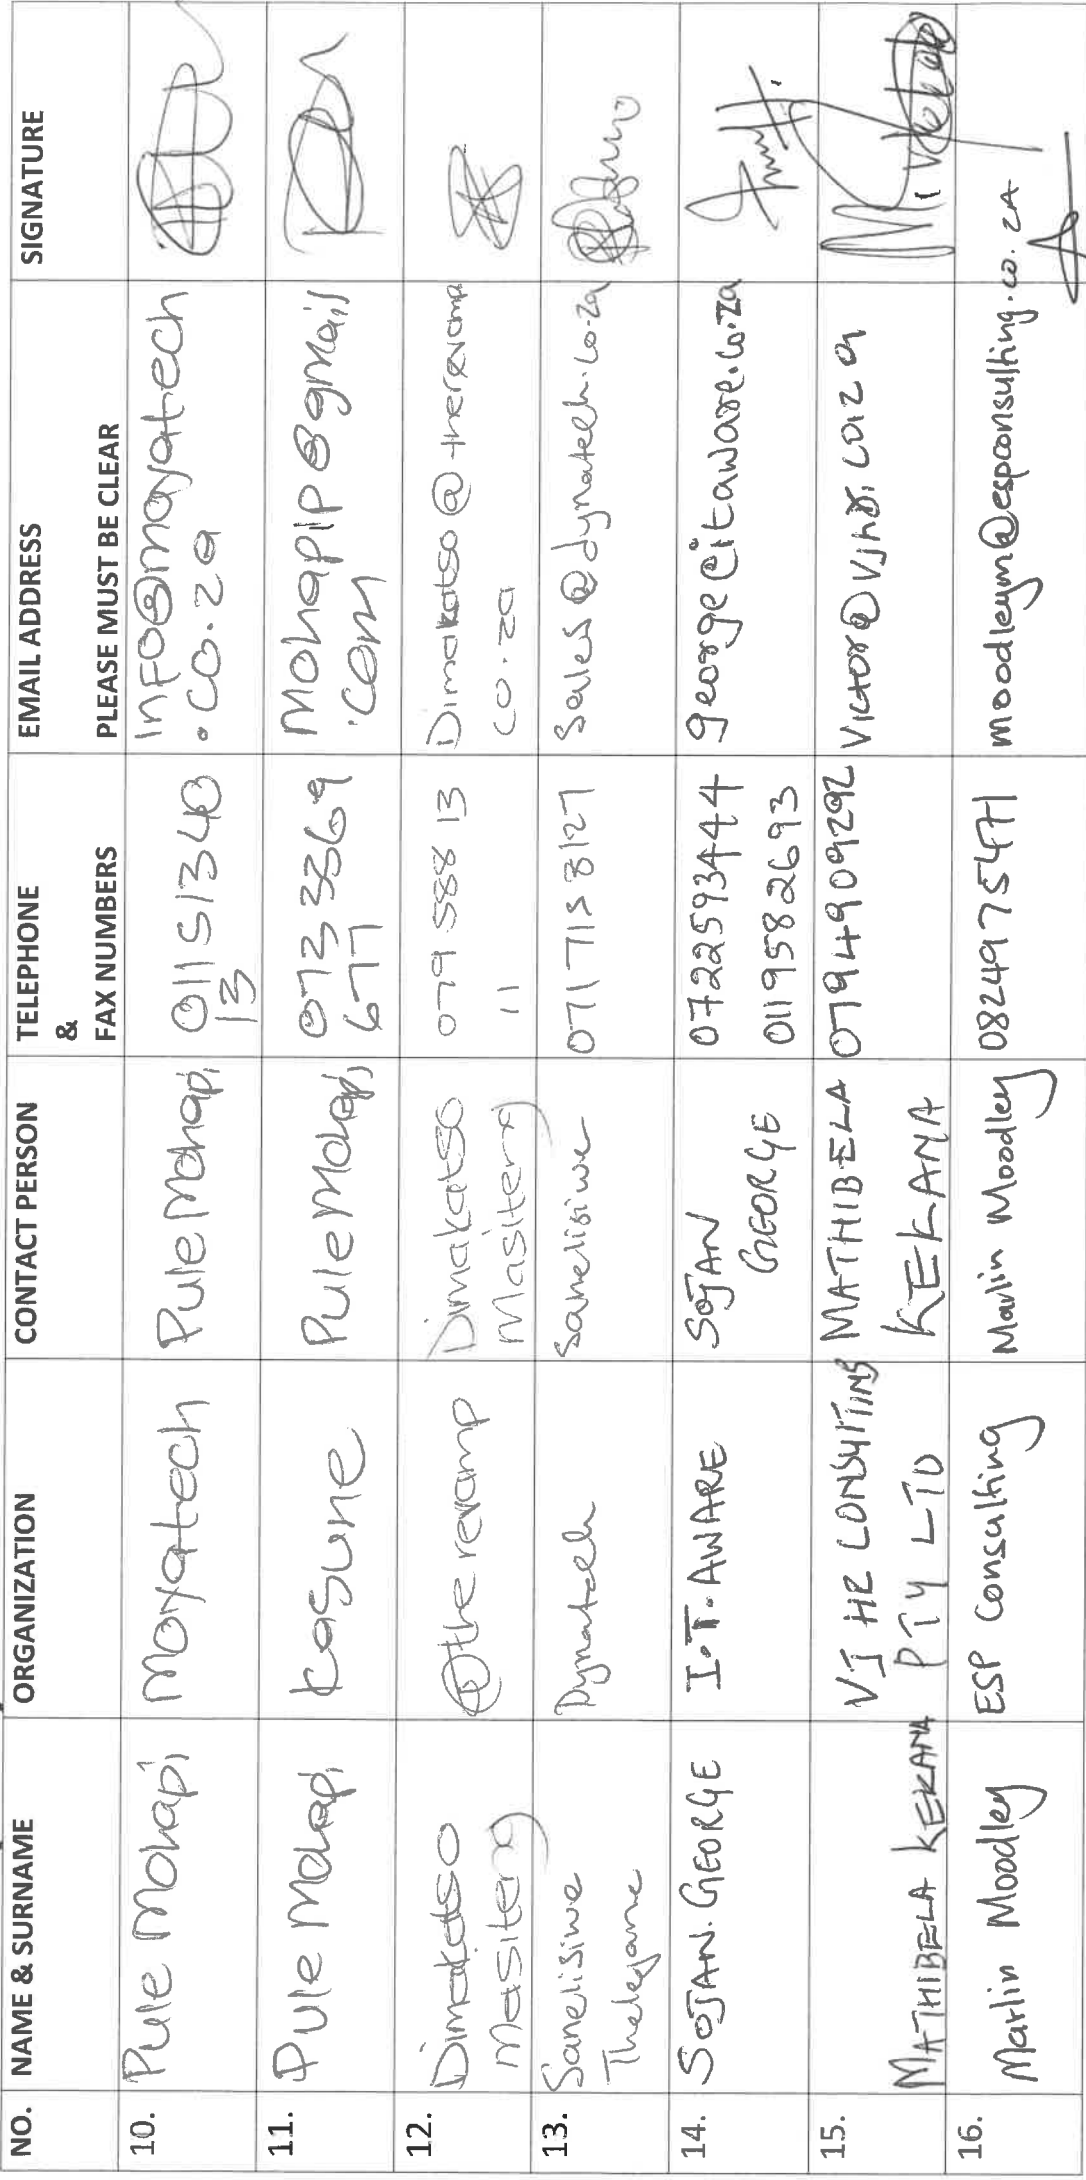 NO. NAME & SURNAME ORGANIZATION CONTACT PERSON TELEPHONE & FAX NUMBERS EMAIL ADDRESS PLEASE MUST BE CLEAR SIGNATURE
10. Pule Mohapi Moyatech Pule Mohapi 011 51340
13 INFO@moyatech
.co.za
11. Pule Mohapi Kasune Pule Mohapi 073 3369
677 Mohapip@gmail
.com
12. Dimakatso
Masiteng @the revamp Dimakatso
Masiteng 079 588 13
11 Dimakatso@therevamp
co.za
13. Sanelisiwe
Dynatech Sanelisiwe Sales@dynatech.co.za
14. SOJAN. GEORGE I.T. AWARE SOJAN
GEORGE 0722593444
0119582693 george@itaware.co.za
15. MATHIBELA KEKANA VJ HR CONSULTING
PTY LTD MATHIBELA
KEKANA 0794909292 Victor@vjhr.co.za
16. Marlin Moodley ESP Consulting Marlin Moodley 0824975471 moodleym@espconsulting.co.zA